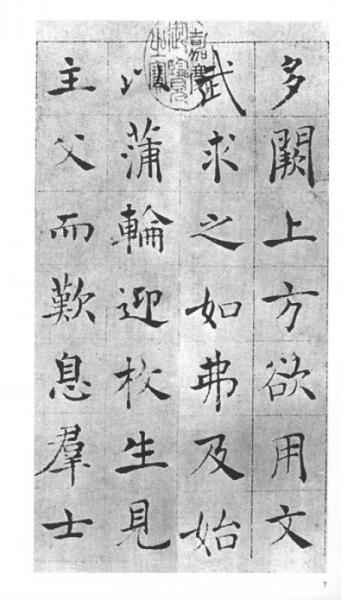 多闕上方欲用文
武求之如弗及始
以蒲輪迎枚生見
主父而歎息羣士
嘉慶御覽之寶
7